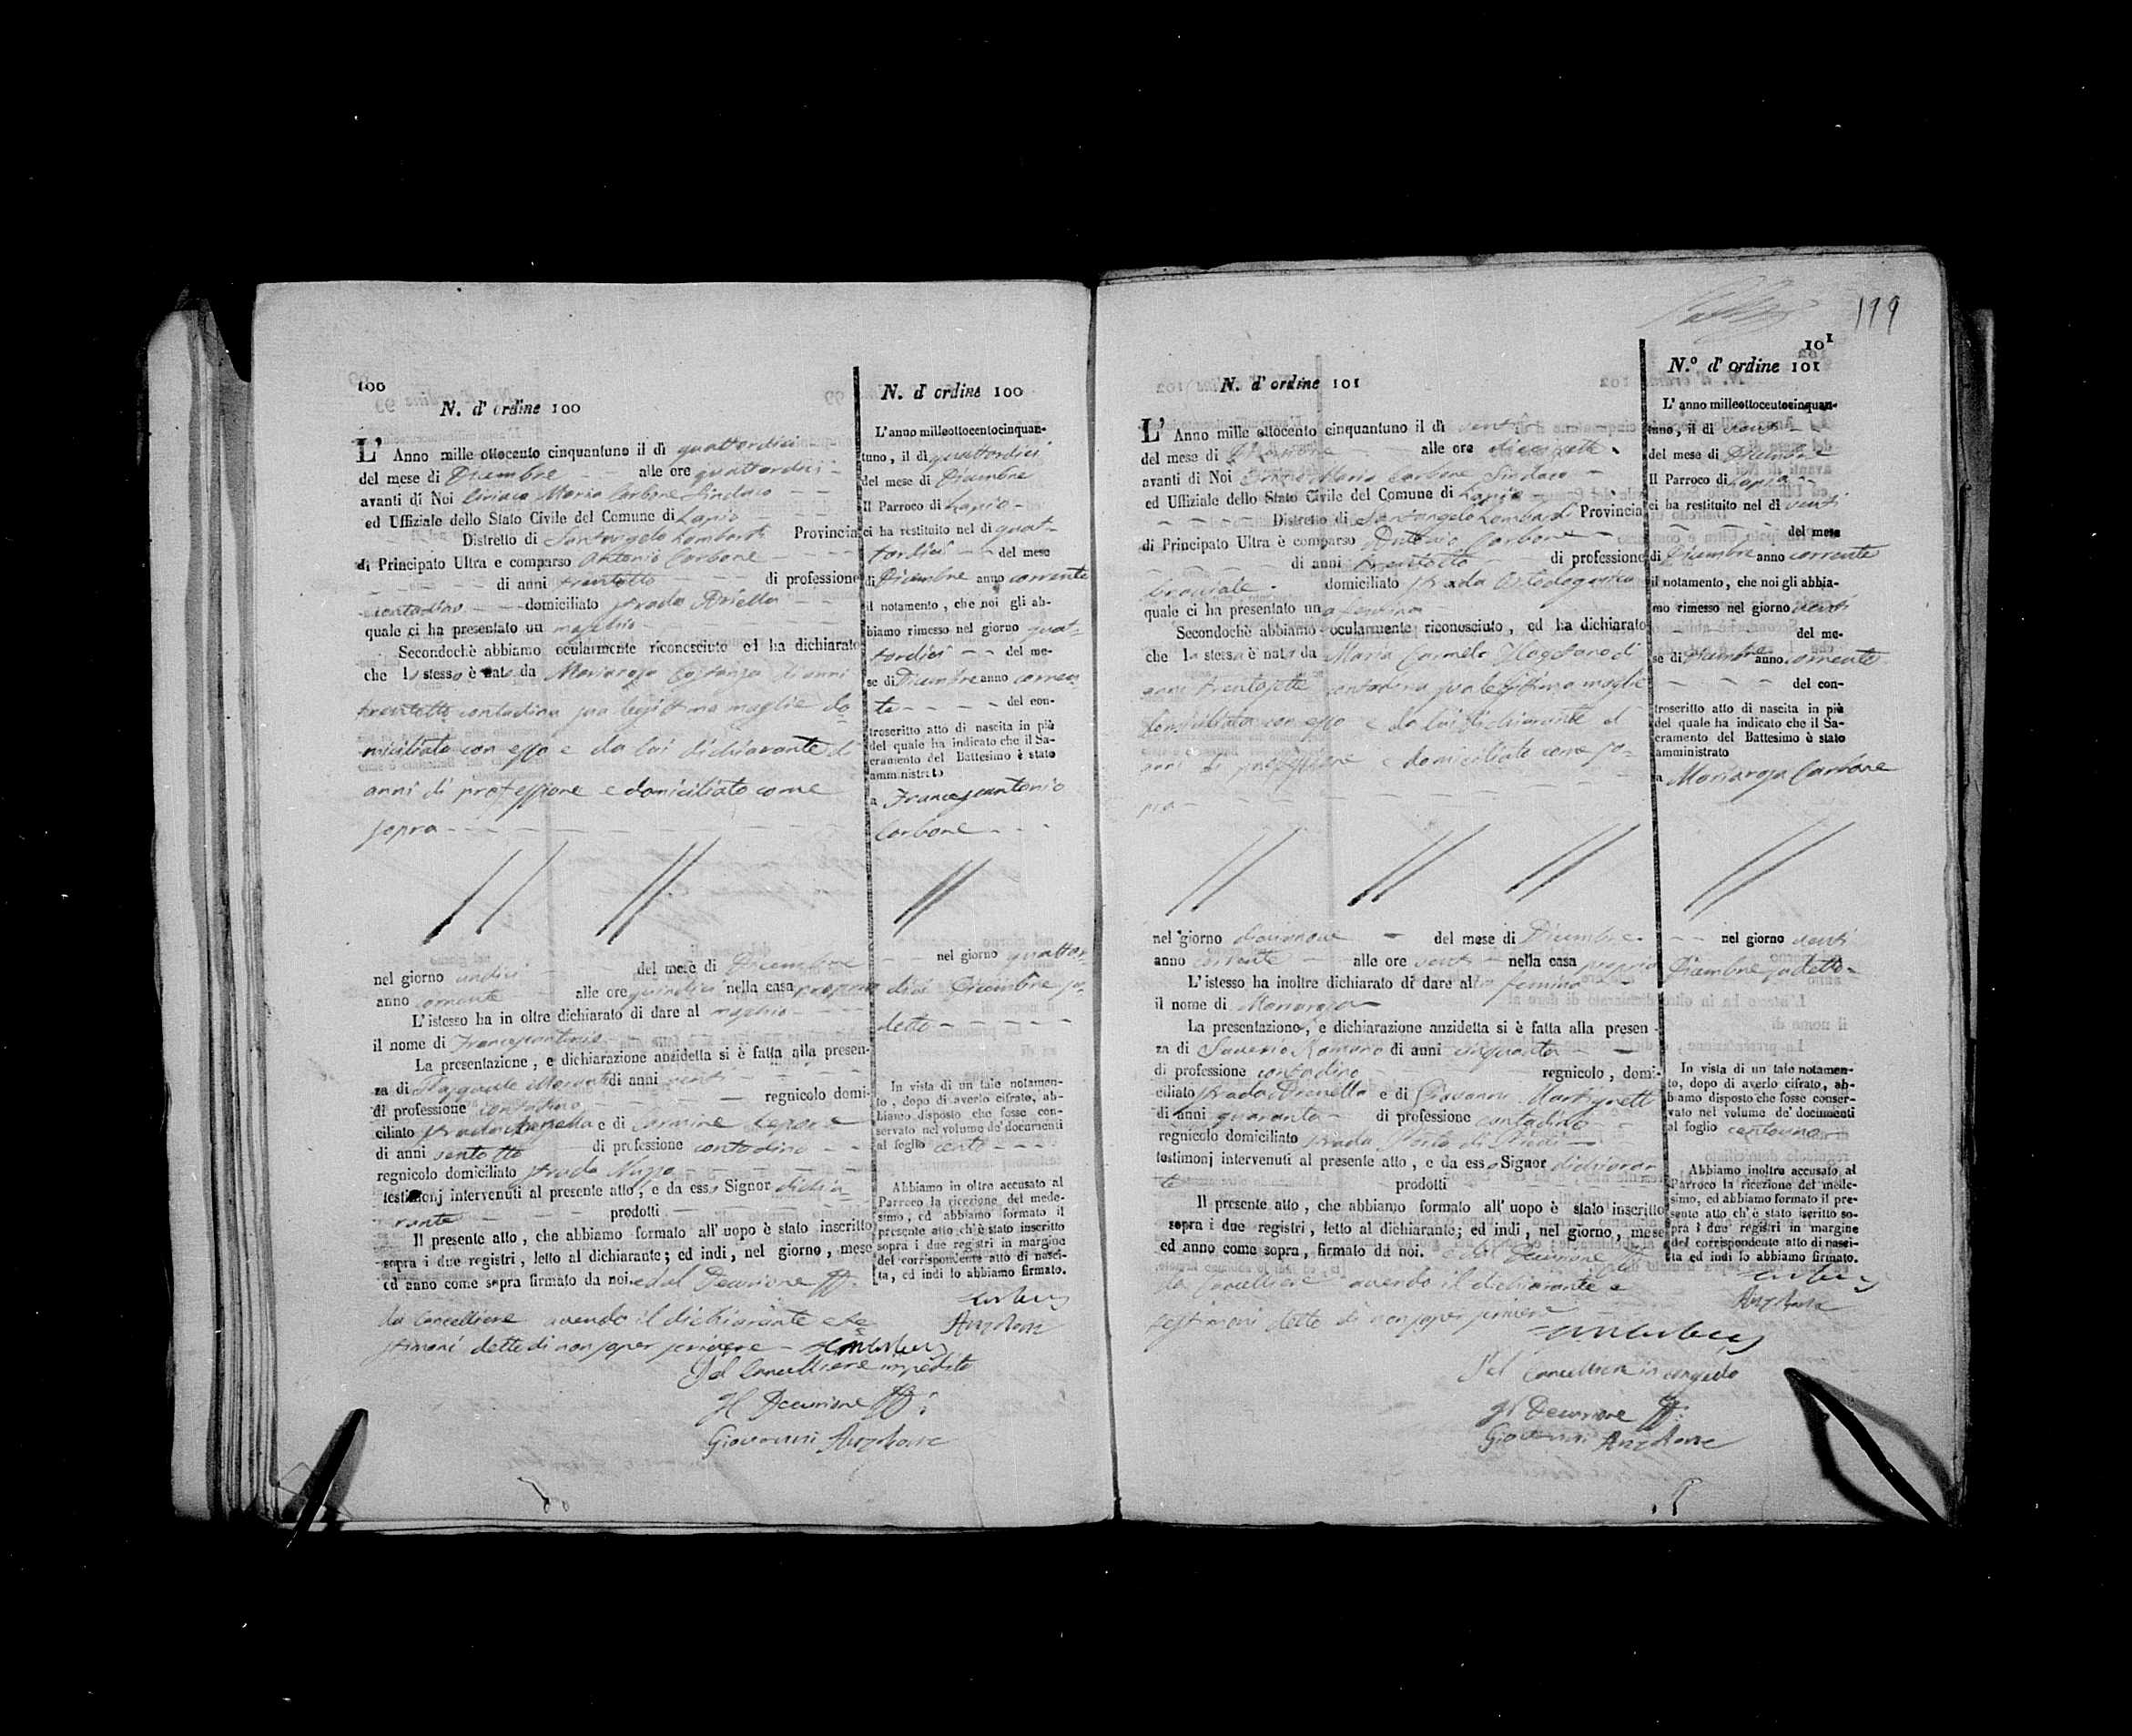 100
N. d' ordine 100
L' Anno mille ottocento cinquantuno il dì quattordici
del mese di Dicembre alle ore quattordici
avanti di Noi Ciriaco Maria Carbone Sindaco
ed Uffiziale dello Stato Civile del Comune di Lapio
Distretto di Santangelo Lombardi Provincia
di Principato Ultra e comparso Antonio Carbone
di anni trentotto di professione
contadino domiciliato strada Ariella
quale ci ha presentato un maschio
Secondochè abbiamo ocularmente riconosciuto ed ha dichiarato
che lo stesso è nato da Mariarosa Costanza di anni
trentotto contadina sua legittima moglie do
miciliata con esso e da lui dichiarante di
anni di professione e domiciliato come
sopra
nel giorno undici del mese di Dicembre
anno corrente alle ore quindici nella casa propria
L'istesso ha in oltre dichiarato di dare al maschio
il nome di Francescantonio
La presentazione, e dichiarazione anzidetta si è fatta alla presen-
za di Pasquale di anni venti
di professione contadino regnicolo domi-
ciliato strada e di Carmine Lepore
di anni ventotto di professione contadino
regnicolo domiciliato strada
testimonj intervenuti al presente atto, e da esso Signor dichia-
rante prodotti
Il presente atto, che abbiamo formato all' uopo è stato inscritto
sopra i due registri, letto al dichiarante; ed indi, nel giorno, mese
ed anno come sopra firmato da noi e dal Decurione ff.
da Cancelliere avendo il dichiarante e te
stimoni detto di non saper scrivere
Pel Cancelliere impedito
Il Decurione ff:
Giovanni Anzalone
N. d' ordine 100
L'anno milleottocentocinquan-
tuno, il dì quattordici
del mese di Dicembre
Il Parroco di Lapio
ci ha restituito nel dì quat-
tordici del mese
di Dicembre anno corrente
il notamento, che noi gli ab-
biamo rimesso nel giorno quat-
tordici del me-
se di Dicembre anno corren
te del con-
troscritto atto di nascita in più
del quale ha indicato che il Sa-
cramento del Battesimo è stato
amministrato
a Francescantonio
Carbone
nel giorno quattor-
dici Dicembre su-
detto
In vista di un tale notamen-
to, dopo di averlo cifrato, ab-
biamo disposto che fosse con-
servato nel volume de' documenti
al foglio cento
Abbiamo in oltre accusato al
Parroco la ricezione del mede-
simo, ed abbiamo formato il
presente atto ch'è stato inscritto
sopra i due registri in margine
del corrispondente atto di nasci-
ta, ed indi lo abbiamo firmato.
Anzalone
199
101
N. d' ordine 101
L' Anno mille ottocento cinquantuno il dì venti
del mese di Dicembre alle ore diecisette
avanti di Noi Ciriaco Maria Carbone Sindaco
ed Uffiziale dello Stato Civile del Comune di Lapio
Distretto di Santangelo Lombardi Provincia
di Principato Ultra è comparso Antonio Carbone
di anni trentotto di professione
bracciale domiciliato strada
quale ci ha presentato una femina
Secondochè abbiamo ocularmente riconosciuto, ed ha dichiarato
che la stessa è nata da Maria Carmela di
anni trentasette contadina sua legittima moglie
domiciliata con esso e da lui dichiarante di
anni di professione e domiciliato come so-
pra
nel giorno diecinove del mese di Dicembre
anno corrente alle ore venti nella casa propria
L'istesso ha inoltre dichiarato di dare alla femina
il nome di Mariarosa
La presentazione, e dichiarazione anzidetta si è fatta alla presen-
za di Saverio Romano di anni cinquanta
di professione contadino regnicolo, domi-
ciliato strada e di Giovanni Martignetti
di anni quaranta di professione contadino
regnicolo domiciliato strada Porta di
testimonj intervenuti al presente atto, e da esso Signor dichiaran
te prodotti
Il presente atto, che abbiamo formato all' uopo è stato inscritto
sopra i due registri, letto al dichiarante; ed indi, nel giorno, mese
ed anno come sopra, firmato da noi. e dal Decurione ff
da Cancelliere avendo il dichiarante e
testimoni detto di non saper scrivere
Pel Cancelliere in congedo
Il Decurione ff:
Giovanni Anzalone
N.° d' ordine 101
L' anno milleottocentocinquan-
tuno, il dì venti
del mese di Dicembre
Il Parroco di Lapio
ci ha restituito nel dì venti
del mese
di Dicembre anno corrente
il notamento, che noi gli abbia-
mo rimesso nel giorno venti
del me-
se di Dicembre anno corrente
del con-
troscritto atto di nascita in più
del quale ha indicato che il Sa-
cramento del Battesimo è stato
amministrato
a Mariarosa Carbone
nel giorno venti
Dicembre sudetto
In vista di un tale notamen-
to, dopo di averlo cifrato, ab-
biamo disposto che fosse conser-
vato nel volume de' documenti
al foglio centouno
Abbiamo inoltre accusato al
Parroco la ricezione del mede-
simo, ed abbiamo formato il pre-
sente atto ch' è stato iscritto so-
pra i due registri in margine
del corrispondente atto di nasci-
ta ed indi lo abbiamo firmato.
Anzalone